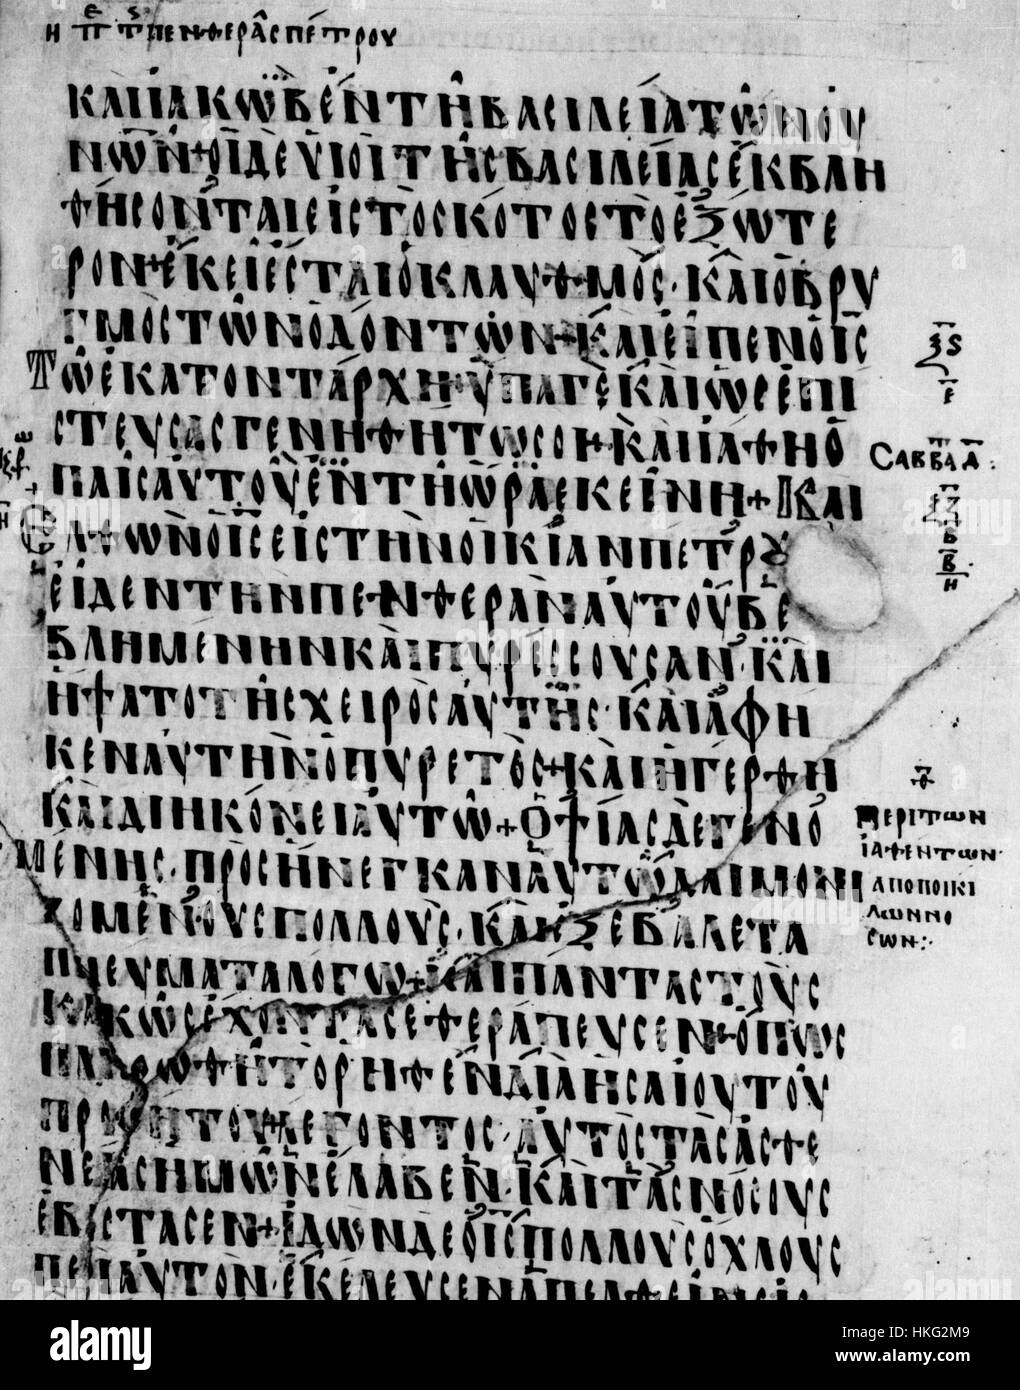 Η ΠΕ ΤΣ ΠΕΝΘΕΡΑ̂Σ ΠΈΤΡΟΥ
ΚΑΙ ΙΑΚΩΒ ΕΝ ΤΗ ΒΑΣΙΛΕΙΑ ΤΩΝ ΟΥ
ΝΩΝ + ΟΙ ΔΕ ΥΙΟΙ ΤΗΣ ΒΑΣΙΛΕΙΑΣ ΕΚΒΛΗ
ΘΗΣΟΝΤΑΙ ΕΙΣ ΤΟ ΣΚΟΤΟΣ ΤΟ ΕΞΩΤΕ
ΡΟΝ + ΕΚΕΙ ΕΣΤΑΙ Ο ΚΛΑΥΘΜΟΣ · ΚΑΙ Ο ΒΡΥ
ΓΜΟΣ ΤΩΝ ΟΔΟΝΤΩΝ + ΚΑΙ ΕΙΠΕΝ Ο ΙΣ
ΤΩ ΕΚΑΤΟΝΤΑΡΧΗ + ΥΠΑΓΕ ΚΑΙ ΩΣ ΕΠΙ
ΣΤΕΥΣΑΣ ΓΕΝΗΘΗΤΩ ΣΟΙ + ΚΑΙ ΙΑΘΗ Ο
ΠΑΙΣ ΑΥΤΟΥ ΕΝ ΤΗ ΩΡΑ ΕΚΕΙΝΗ + ΚΑΙ
ΕΛΘΩΝ Ο ΙΣ ΕΙΣ ΤΗΝ ΟΙΚΙΑΝ ΠΕΤΡΟΥ
ΕΙΔΕΝ ΤΗΝ ΠΕΝΘΕΡΑΝ ΑΥΤΟΥ ΒΕ
ΒΛΗΜΕΝΗΝ ΚΑΙ ΠΥΡΕΣΣΟΥΣΑΝ · ΚΑΙ
ΗΨΑΤΟ ΤΗΣ ΧΕΙΡΟΣ ΑΥΤΗΣ · ΚΑΙ ΑΦΗ
ΚΕΝ ΑΥΤΗΝ Ο ΠΥΡΕΤΟΣ + ΚΑΙ ΗΓΕΡΘΗ
ΚΑΙ ΔΙΗΚΟΝΕΙ ΑΥΤΩ + ΟΨΙΑΣ ΔΕ ΓΕΝΟ
ΜΕΝΗΣ · ΠΡΟΣΗΝΕΓΚΑΝ ΑΥΤΩ ΔΑΙΜΟΝΙ
ΖΟΜΕΝΟΥΣ ΠΟΛΛΟΥΣ · ΚΑΙ ΕΞΕΒΑΛΕ ΤΑ
ΠΝΕΥΜΑΤΑ ΛΟΓΩ + ΚΑΙ ΠΑΝΤΑΣ ΤΟΥΣ
ΚΑΚΩΣ ΕΧΟΝΤΑΣ ΕΘΕΡΑΠΕΥΣΕΝ + ΟΠΩΣ
ΠΛΗΡΩΘΗ ΤΟ ΡΗΘΕΝ ΔΙΑ ΗΣΑΙΟΥ ΤΟΥ
ΠΡΟΦΗΤΟΥ + ΛΕΓΟΝΤΟΣ · ΑΥΤΟΣ ΤΑΣ ΑΣΘΕ
ΝΕΙΑΣ ΗΜΩΝ ΕΛΑΒΕΝ · ΚΑΙ ΤΑΣ ΝΟΣΟΥΣ
ΕΒΑΣΤΑΣΕΝ + ΙΔΩΝ ΔΕ Ο ΙΣ ΠΟΛΛΟΥΣ ΟΧΛΟΥΣ
ΠΕΡΙ ΑΥΤΟΝ · ΕΚΕΛΕΥΣΕΝ ΑΠΕΛΘΕΙΝ ΕΙΣ
ΞϚ
Ε
ΣΑΒΒΑ Δ :
ΞΖ
Β
Β
Η
Θ
ΠΕΡΙ ΤΩΝ
ΙΑΘΕΝΤΩΝ
ΑΠΟ ΠΟΙΚΙ
ΛΩΝ ΝΟ
ΣΩΝ :·
alamy
Image ID: HKG2M9
www.alamy.com